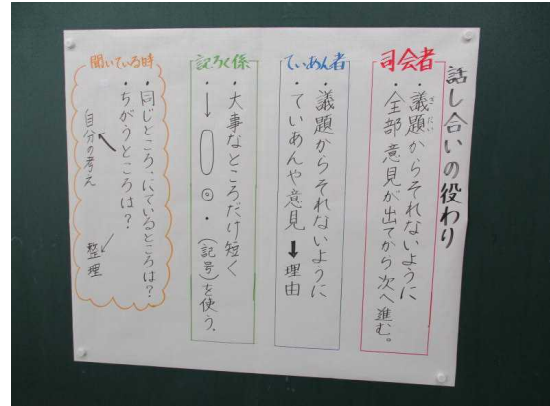 話し合いの役わり
司会者
・議題からそれないように
ぎだい
・全部意見が出てから次へ進む。
ていあん者
・議題からそれないように
・ていあんや意見➡理由
記ろく係
・大事なところだけ短く
・→ ◎ ・ (記号)を使う.
聞いている時
・同じところ、にているところは?
・ちがうところは?
自分の考え
整理